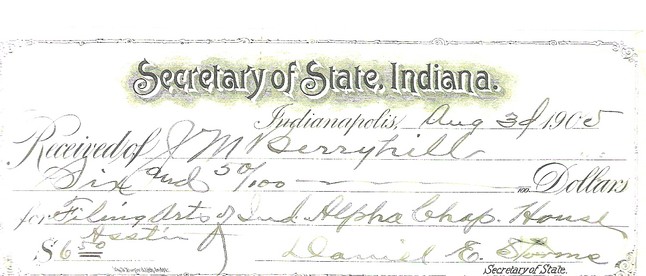 Secretary of State, Indiana.
Indianapolis, Aug 3d 1905
Received of J M Berryhill
Six and 50/100 Dollars
for Filing Arts of Ind. Alpha Chap. House
Asstn
$ 6 50 Daniel E. Storms
Secretary of State.